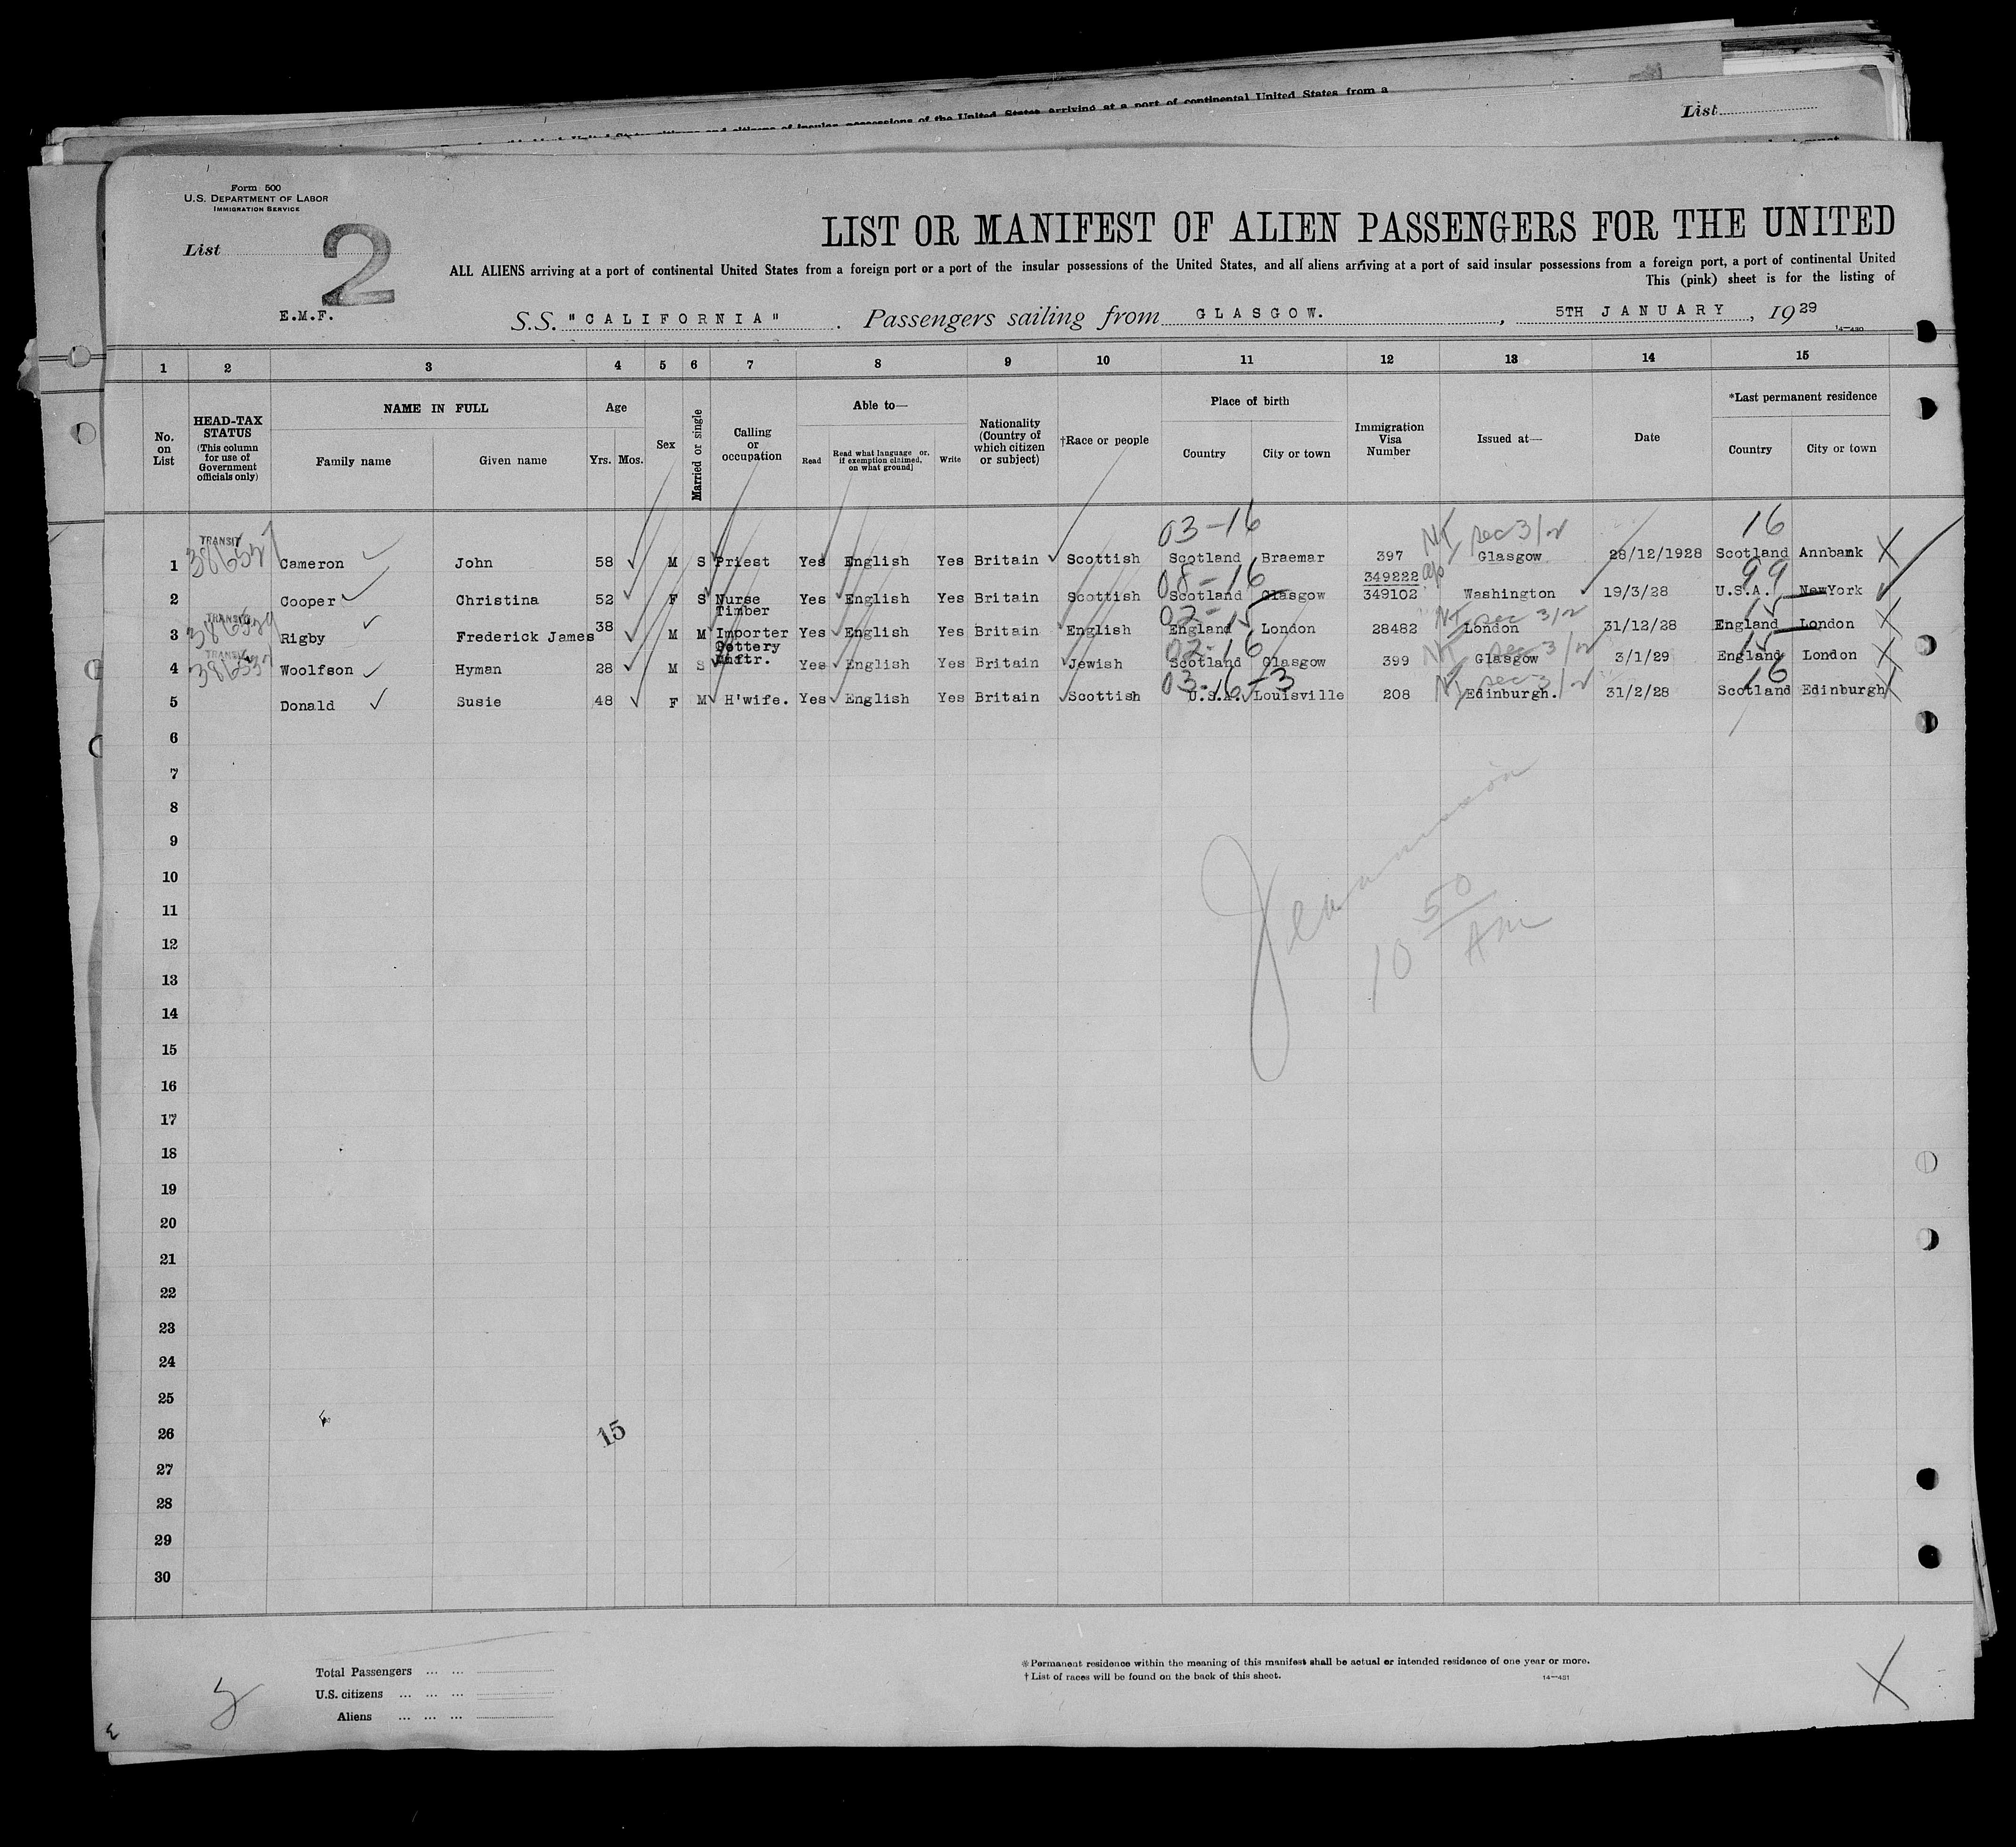 List
Form 500
U.S. DEPARTMENT OF LABOR
IMMIGRATION SERVICE
List
2
LIST OR MANIFEST OF ALIEN PASSENGERS FOR THE UNITED
ALL ALIENS arriving at a port of continental United States from a foreign port or a port of the insular possessions of the United States, and all aliens arriving at a port of said insular possessions from a foreign port, a port of continental United
This (pink) sheet is for the listing of
E.M.F. S.S. "CALIFORNIA". Passengers sailing from GLASGOW., 5TH JANUARY, 1929
14—430
1 2 3 4 5 6 7 8 9 10 11 12 13 14 15
No. on List
HEAD-TAX STATUS (This column for use of Government officials only)
NAME IN FULL
Family name Given name
Age
Yrs. Mos.
Sex
Married or single
Calling or occupation
Able to—
Read Read what language or, if exemption claimed, on what ground] Write
Nationality (Country of which citizen or subject)
†Race or people
Place of birth
Country City or town
Immigration Visa Number
Issued at—
Date
*Last permanent residence
Country City or town
03-16 16
TRANSIT
1 Cameron John 58 M S Priest Yes English Yes Britain Scottish Scotland Braemar 397 Glasgow 28/12/1928 Scotland Annbank X
08-16 349222 99
2 Cooper Christina 52 F S Nurse Yes English Yes Britain Scottish Scotland Glasgow 349102 Washington 19/3/28 U.S.A. NewYork
TRANSIT 02-15 15
3 Rigby Frederick James 38 M M Timber Importer Yes English Yes Britain English England London 28482 London 31/12/28 England London X
TRANSIT 02-16 15
4 Woolfson Hyman 28 M S Pottery Mnftr. Yes English Yes Britain Jewish Scotland Glasgow 399 Glasgow 3/1/29 England London X
03-16-3 16
5 Donald Susie 48 F M H'wife. Yes English Yes Britain Scottish U.S.A. Louisville 208 Edinburgh. 31/2/28 Scotland Edinburgh X
6
7
8
9
10
11
12
13
14
15
16
17
18
19
20
21
22
23
24
25
26
27
28
29
30
10 50 AM
15
Total Passengers ... ...
U.S. citizens ... ... ...
Aliens ... ... ...
*Permanent residence within the meaning of this manifest shall be actual or intended residence of one year or more.
†List of races will be found on the back of this sheet.
14—431
X